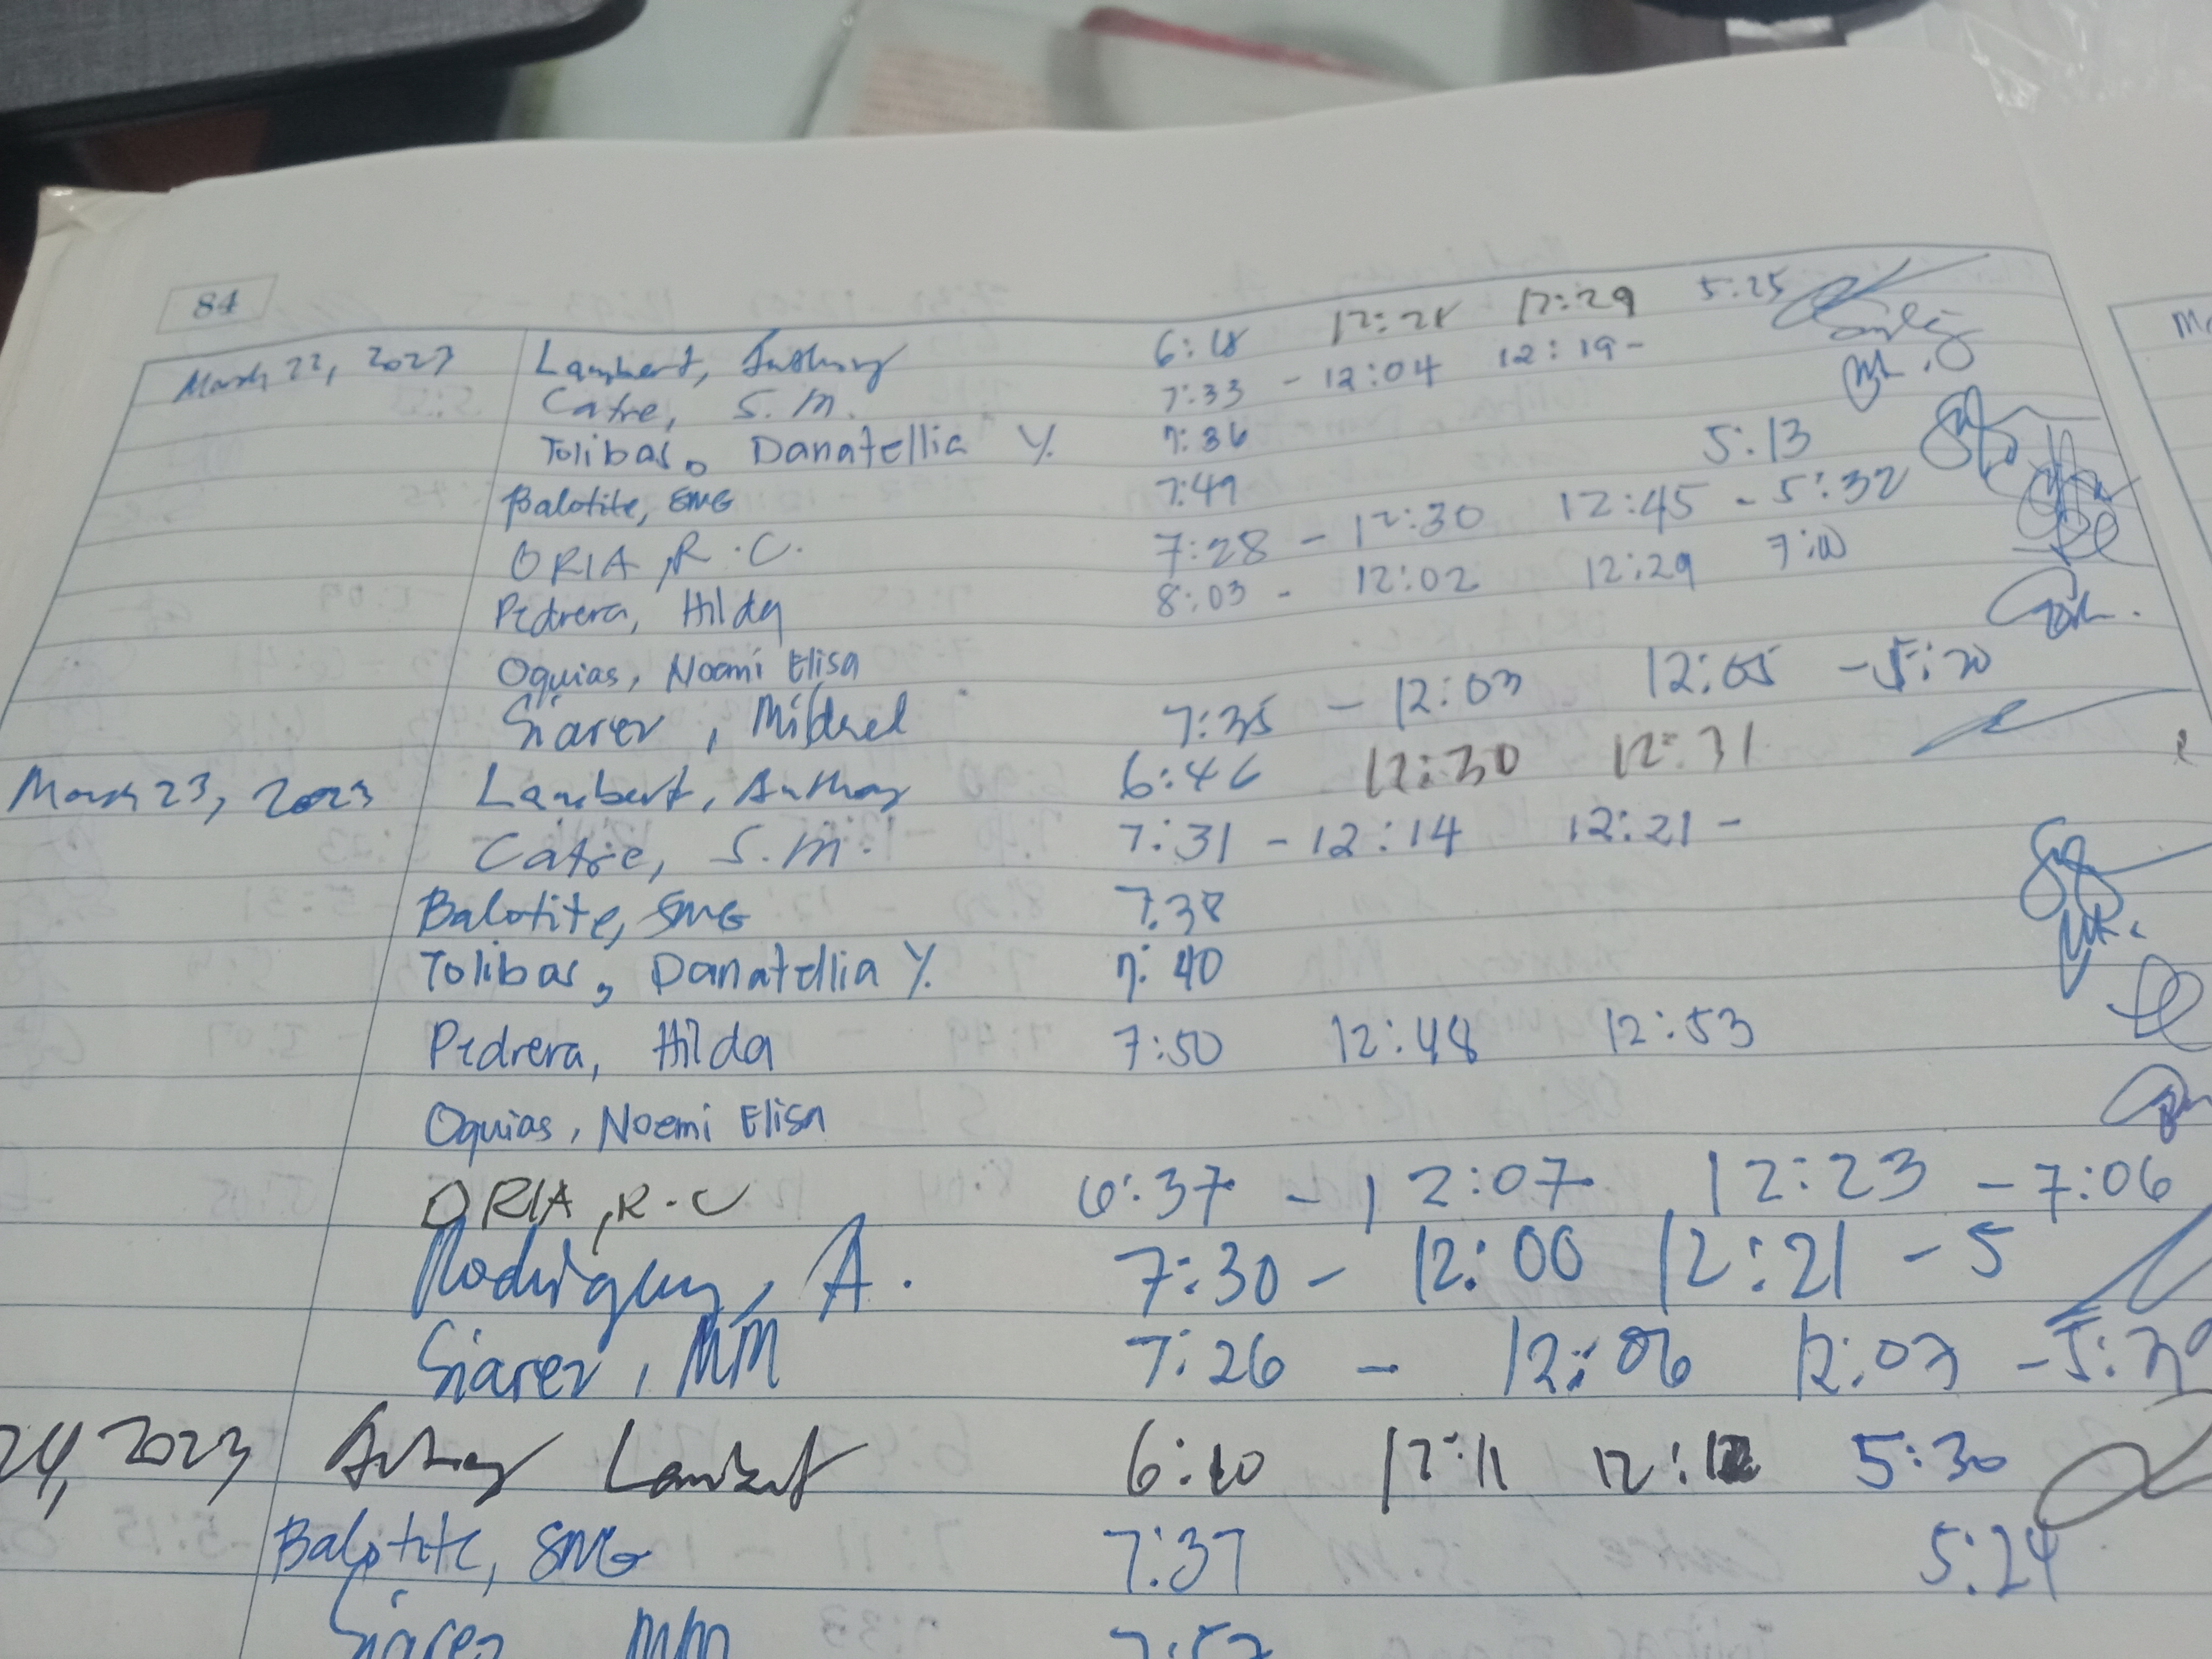 84
March 22, 2023 Lambert, Anthony 6:18 12:28 12:29 5:25
Catre, S.M. 7:33 - 12:04 12:19-
Tolibas, Danatellia Y. 7:36
Balotite, SMG 7:49 5:13
ORIA, R.C. 7:28 - 12:30 12:45 - 5:32
Pedrera, Hilda 8:03 - 12:02 12:29 7:00
Oquias, Noemi Elisa
Siarez, Mildred 7:35 - 12:03 12:05 - 5:30
March 23, 2023 Lambert, Anthony 6:46 12:30 12:31
Catre, S.M. 7:31 - 12:14 12:21 -
Balotite, SMG 7:38
Tolibas, Danatellia Y. 7:40
Pedrera, Hilda 7:50 12:48 12:53
Oquias, Noemi Elisa
ORIA, R.C 6:37 - 12:07 12:23 - 7:06
Rodriguez, A. 7:30 - 12:00 12:21 - 5
Siarez, MM 7:26 - 12:06 12:07 -5:30
24, 2023 Anthony Lambert 6:40 12:11 12:12 5:30
Balotite, SMG 7:37 5:24
Siarez MM 7:57